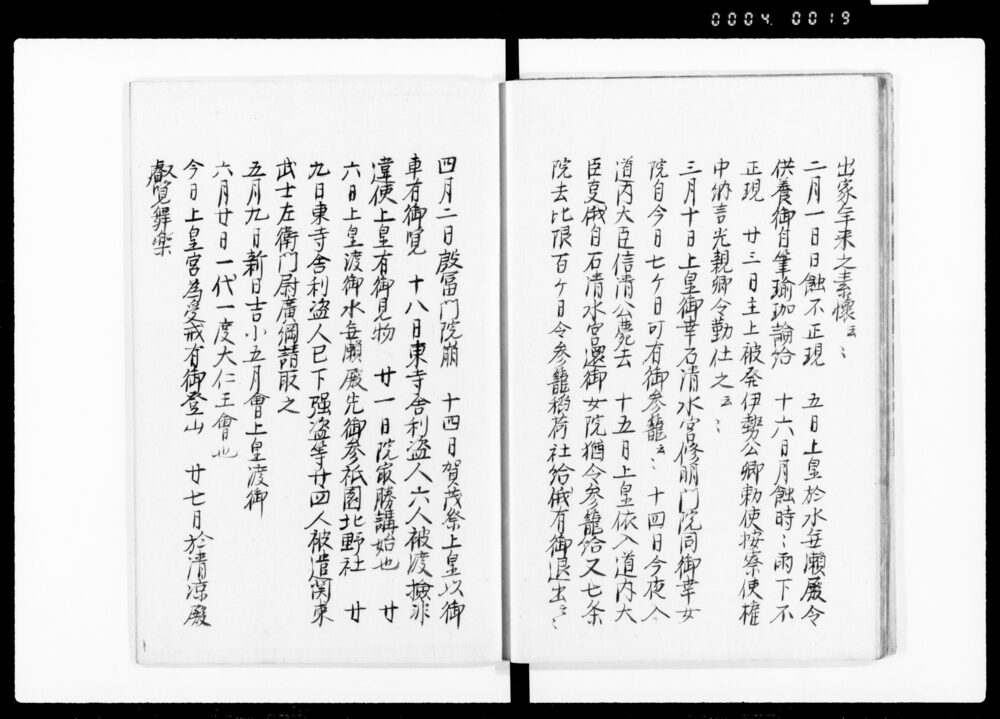 0004 0019
出家年来之素懐云〻
二月一日日蝕不正現　五日上皇於水無瀬殿令
供養御自筆瑜珈論給　十六日月蝕時〻雨下不
正現　廿三日主上被発伊勢公卿勅使按察使権
中納言光親卿令勤仕之云〻
三月十日上皇御幸石清水宮修明門院同御幸女
院自今日七ケ日可有御参籠云〻十四日今夜入
道内大臣信清公薨去　十五日上皇依入道内大
臣㕝俄自石清水宮還御女院猶令参籠給又七条
院去比限百ケ日令参籠稲荷社給俄有御退出云〻
四月二日殷冨門院崩　十四日賀茂祭上皇以御
車有御覧　十八日東寺舎利盗人六人被渡撿非
違使上皇有御見物　廿一日院最勝講始也　廿
六日上皇渡御水無瀬殿先御参祇園北野社　廿
九日東寺舎利盗人已下强盗等廿四人被遣関東
武士左衛門尉廣綱請取之
五月九日新日吉小五月會上皇渡御
六月廿日一代一度大仁王會也
今日上皇宮為受戒有御登山　廿七日於清凉殿
叡覧舞楽